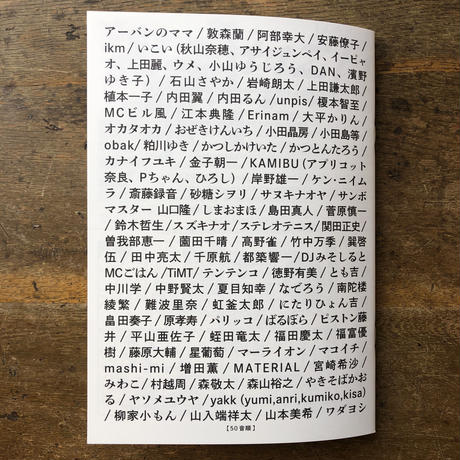 アーバンのママ/敦森蘭/阿部幸大/安藤僚子/
ikm/いこい(秋山奈穂、アサイジュンペイ、イービャ
オ、上田麗、ウメ、小山ゆうじろう、DAN、濱野
ゆき子)/石山さやか/岩崎朗太/上田謙太郎/
植本一子/内田翼/内田るん/unpis/榎本智至/
MCビル風/江本典隆/Erinam/大平かりん/
オカタオカ/おぜきけんいち/小田晶房/小田島等/
obak/粕川ゆき/かつしかけいた/かつとんたろう/
カナイフユキ/金子朝一/KAMIBU(アプリコット
奈良、Pちゃん、ひろし)/岸野雄一/ケン・ニイム
ラ/斎藤録音/砂糖シヲリ/サヌキナオヤ/サンボ
マスター 山口隆/しまおまほ/島田真人/菅原慎一
/鈴木哲生/スズキナオ/ステレオテニス/関田正史/
曽我部恵一/薗田千晴/高野雀/竹中万季/巽啓
伍/田中亮太/千原航/都築響一/DJみそしると
MCごはん/TiMT/テンテンコ/徳野有美/とも吉/
中川学/中野賢太/夏目知幸/なでろう/南陀楼
綾繁/難波里奈/虹釜太郎/にたりひょん吉/
畠田奏子/原孝寿/パリッコ/ばるぼら/ピストン藤
井/平山亜佐子/蛭田竜太/福田慶太/福富優
樹/藤原大輔/星葡萄/マーライオン/マコイチ/
mashi-mi/増田薫/MATERIAL/宮崎希沙/
みわこ/村越周/森敬太/森山裕之/やきそばかお
る/ヤソメユウヤ/yakk(yumi,anri,kumiko,kisa)
/柳家小もん/山入端祥太/山本美希/ワダヨシ
【50音順】